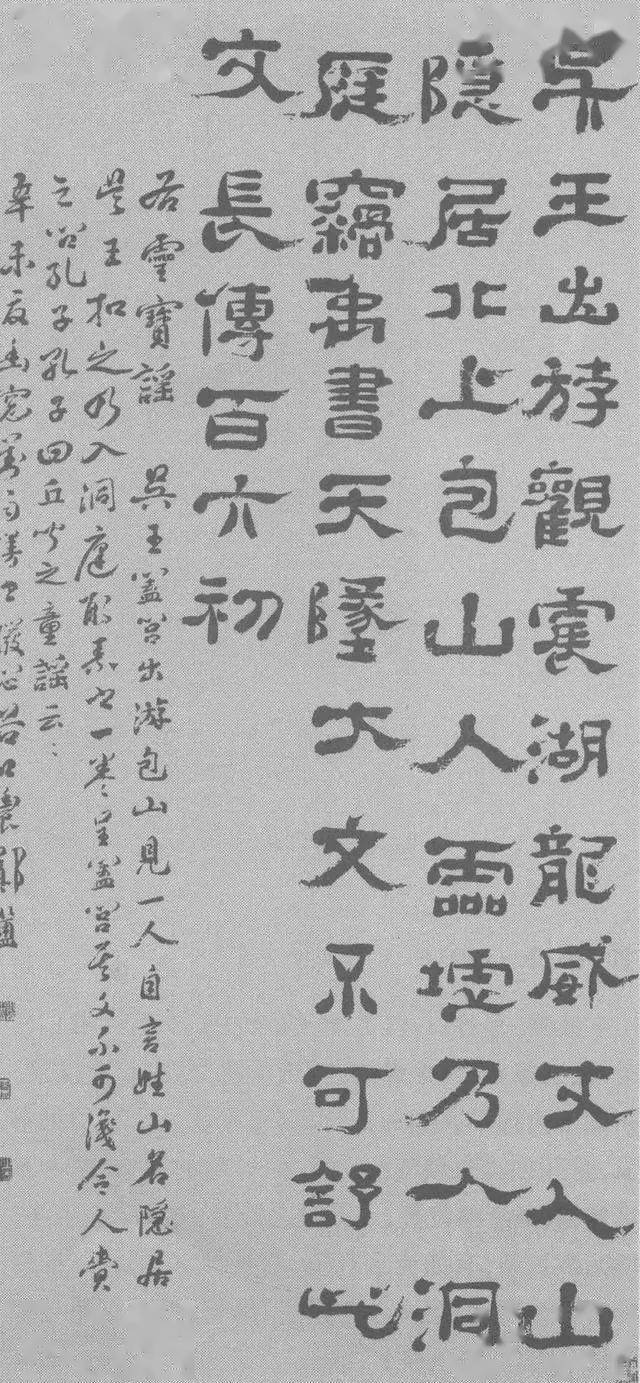 吳王出斿觀震湖龍威丈人山
隱居北上包山入靈墟乃入洞
庭竊禹書天墬大文不可舒此
文長傳百六初
右靈寶謠 吳王闔閭出游包山見一人自言姓山名隱居
吳王扣之乃入洞庭取素書一卷呈闔閭其文不可識令人賫
之問孔子孔子曰丘聞之童謠云〻
辛未夏谷口農鄭簠